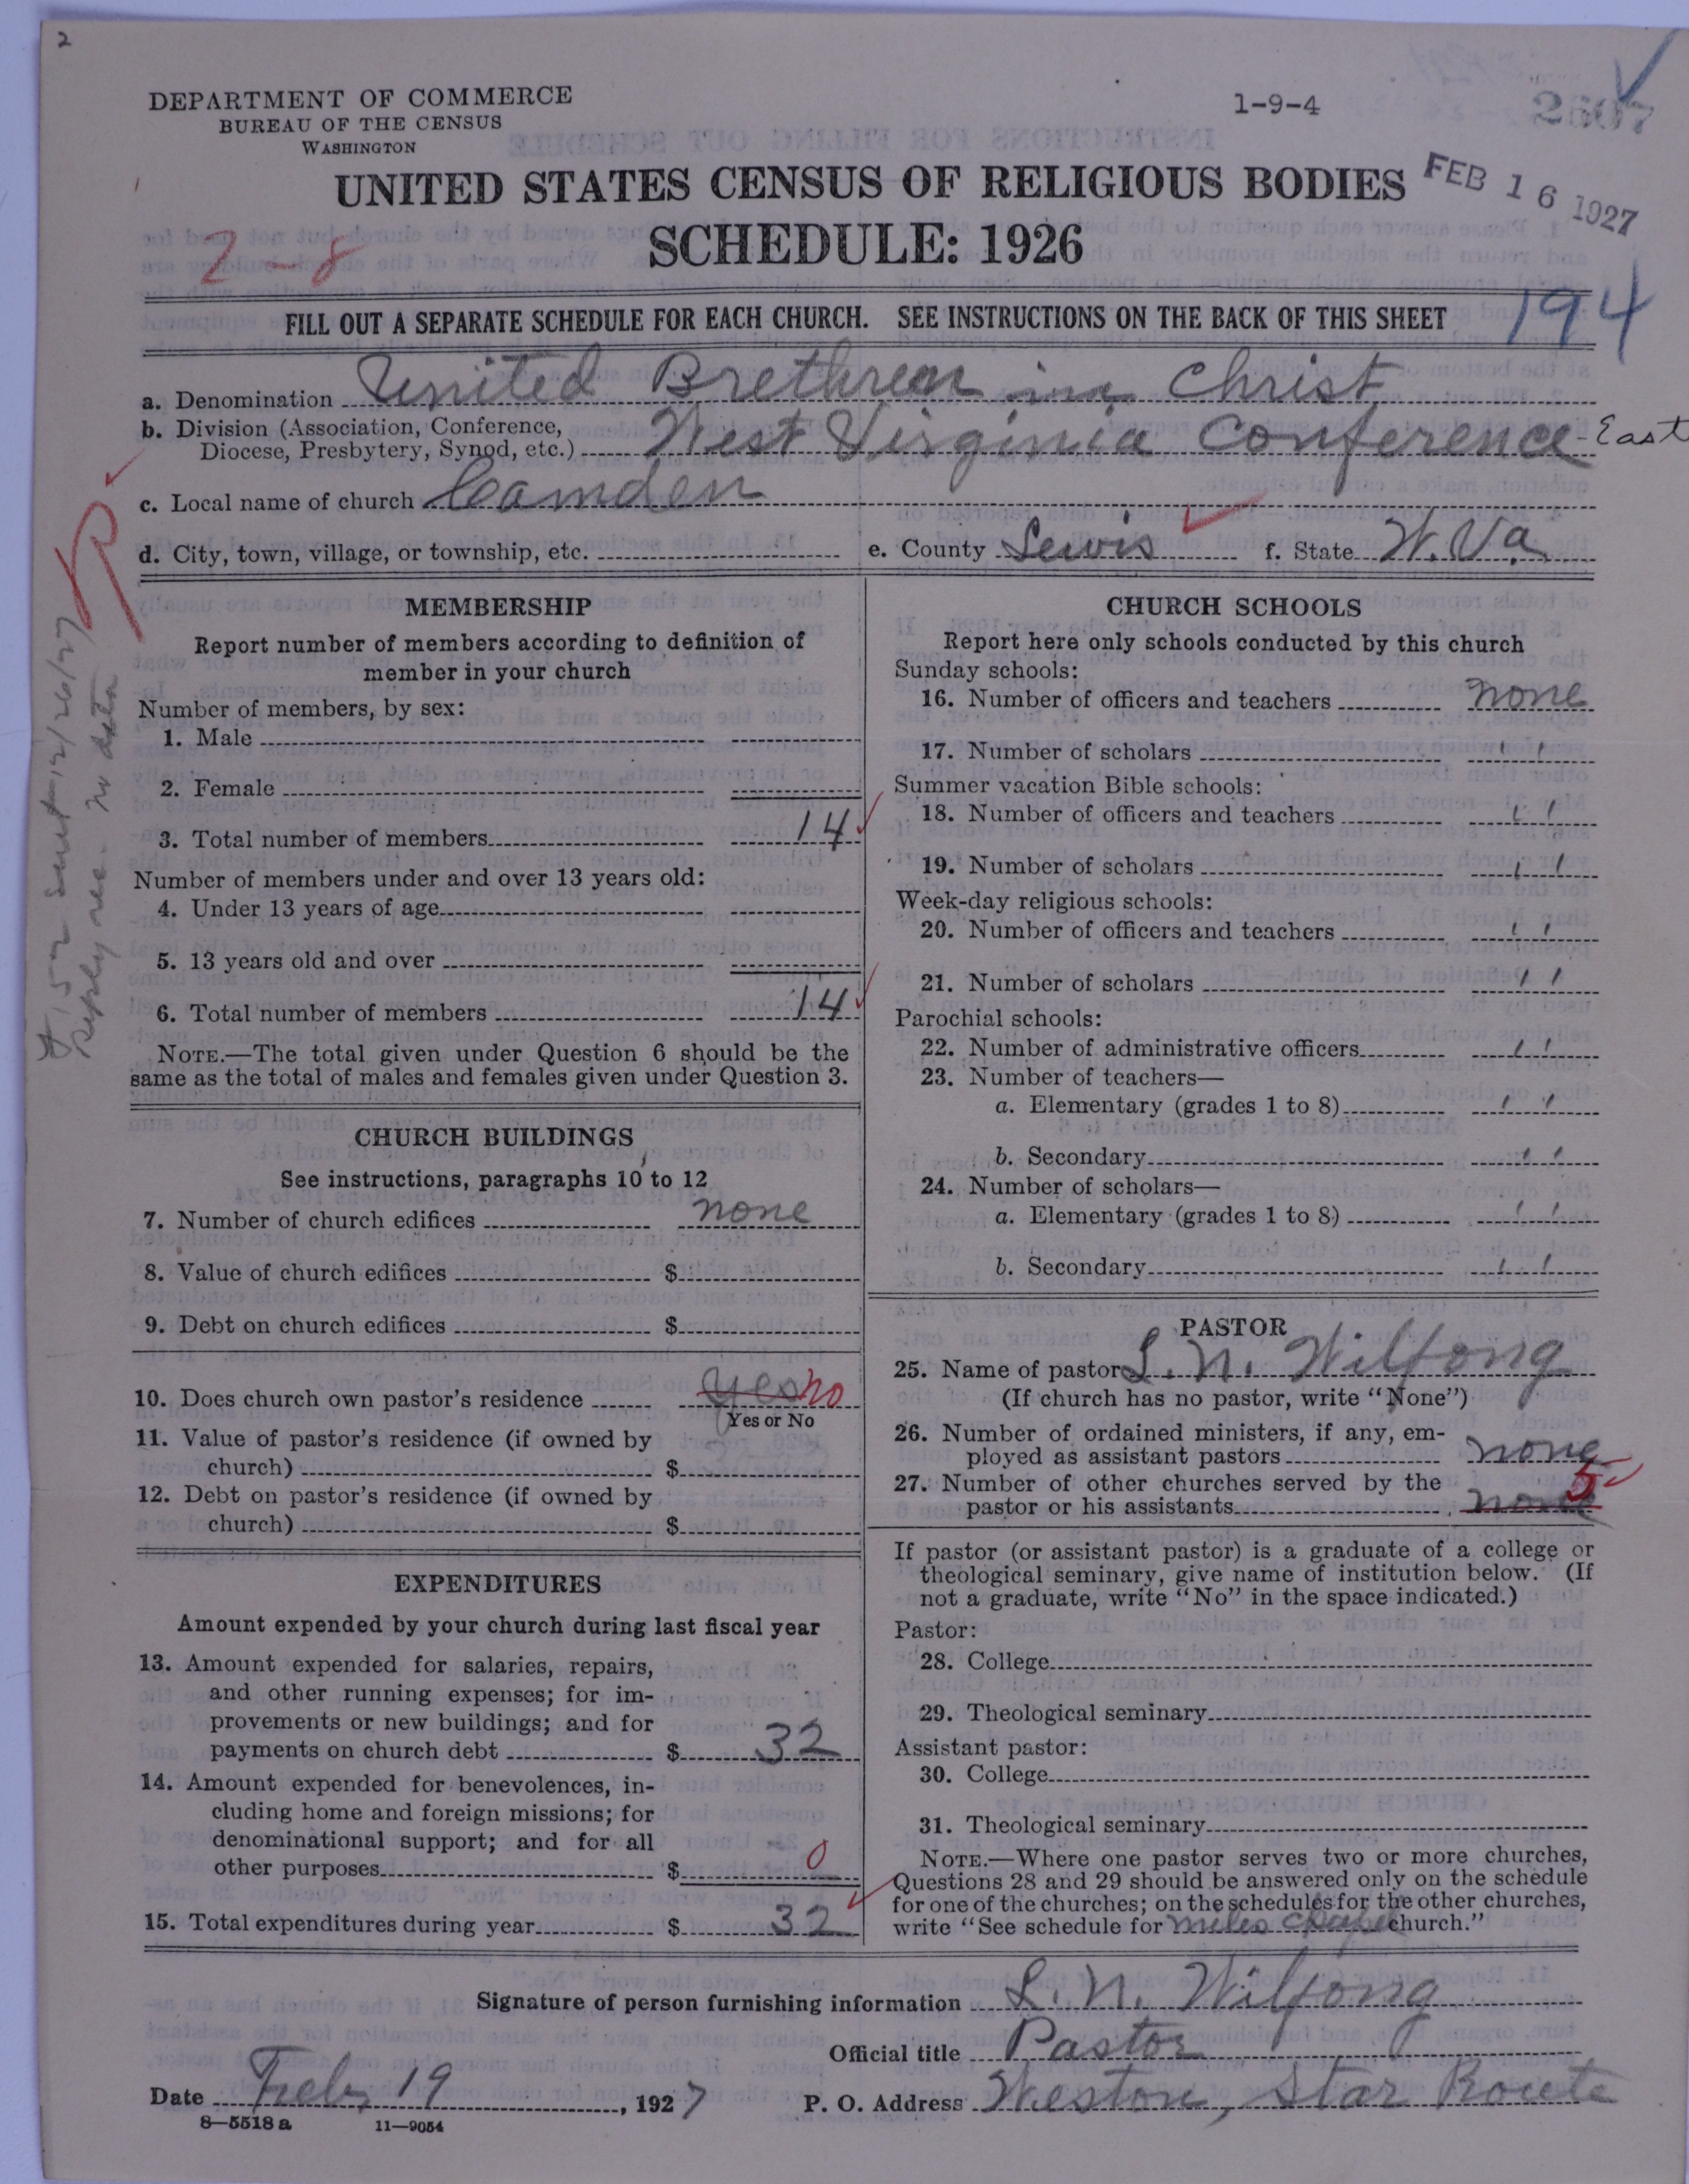 2
DEPARTMENT OF COMMERCE
BUREAU OF THE CENSUS
WASHINGTON
1-9-4
2607
UNITED STATES CENSUS OF RELIGIOUS BODIES
FEB 16 1927
SCHEDULE: 1926
2-8
FILL OUT A SEPARATE SCHEDULE FOR EACH CHURCH. SEE INSTRUCTIONS ON THE BACK OF THIS SHEET
194
a. Denomination United Brethren in Christ
b. Division (Association, Conference,
Diocese, Presbytery, Synod, etc.) West Virginia Conference - East
c. Local name of church Camden
d. City, town, village, or township, etc.
e. County Lewis
f. State W. Va.
MEMBERSHIP
Report number of members according to definition of
member in your church
Number of members, by sex:
1. Male
2. Female
3. Total number of members 14
Number of members under and over 13 years old:
4. Under 13 years of age
5. 13 years old and over
6. Total number of members 14
NOTE.—The total given under Question 6 should be the
same as the total of males and females given under Question 3.
CHURCH BUILDINGS
See instructions, paragraphs 10 to 12
7. Number of church edifices none
8. Value of church edifices $
9. Debt on church edifices $
10. Does church own pastor's residence yes no
Yes or No
11. Value of pastor's residence (if owned by
church) $
12. Debt on pastor's residence (if owned by
church) $
EXPENDITURES
Amount expended by your church during last fiscal year
13. Amount expended for salaries, repairs,
and other running expenses; for im-
provements or new buildings; and for
payments on church debt $ 32
14. Amount expended for benevolences, in-
cluding home and foreign missions; for
denominational support; and for all
other purposes $ 0
15. Total expenditures during year $ 32
CHURCH SCHOOLS
Report here only schools conducted by this church
Sunday schools:
16. Number of officers and teachers none
17. Number of scholars " "
Summer vacation Bible schools:
18. Number of officers and teachers " "
19. Number of scholars " "
Week-day religious schools:
20. Number of officers and teachers " "
21. Number of scholars " "
Parochial schools:
22. Number of administrative officers " "
23. Number of teachers—
a. Elementary (grades 1 to 8) " "
b. Secondary " "
24. Number of scholars—
a. Elementary (grades 1 to 8) " "
b. Secondary " "
PASTOR
25. Name of pastor L. N. Wilfong
(If church has no pastor, write "None")
26. Number of ordained ministers, if any, em-
ployed as assistant pastors none
27. Number of other churches served by the
pastor or his assistants none 5
If pastor (or assistant pastor) is a graduate of a college or
theological seminary, give name of institution below. (If
not a graduate, write "No" in the space indicated.)
Pastor:
28. College
29. Theological seminary
Assistant pastor:
30. College
31. Theological seminary
NOTE.—Where one pastor serves two or more churches,
Questions 28 and 29 should be answered only on the schedule
for one of the churches; on the schedules for the other churches,
write "See schedule for miles chapel church."
Signature of person furnishing information L. N. Wilfong
Official title Pastor
Date Feb, 19, 1927
P. O. Address Weston, Star Route
8—5518 a
11—9054